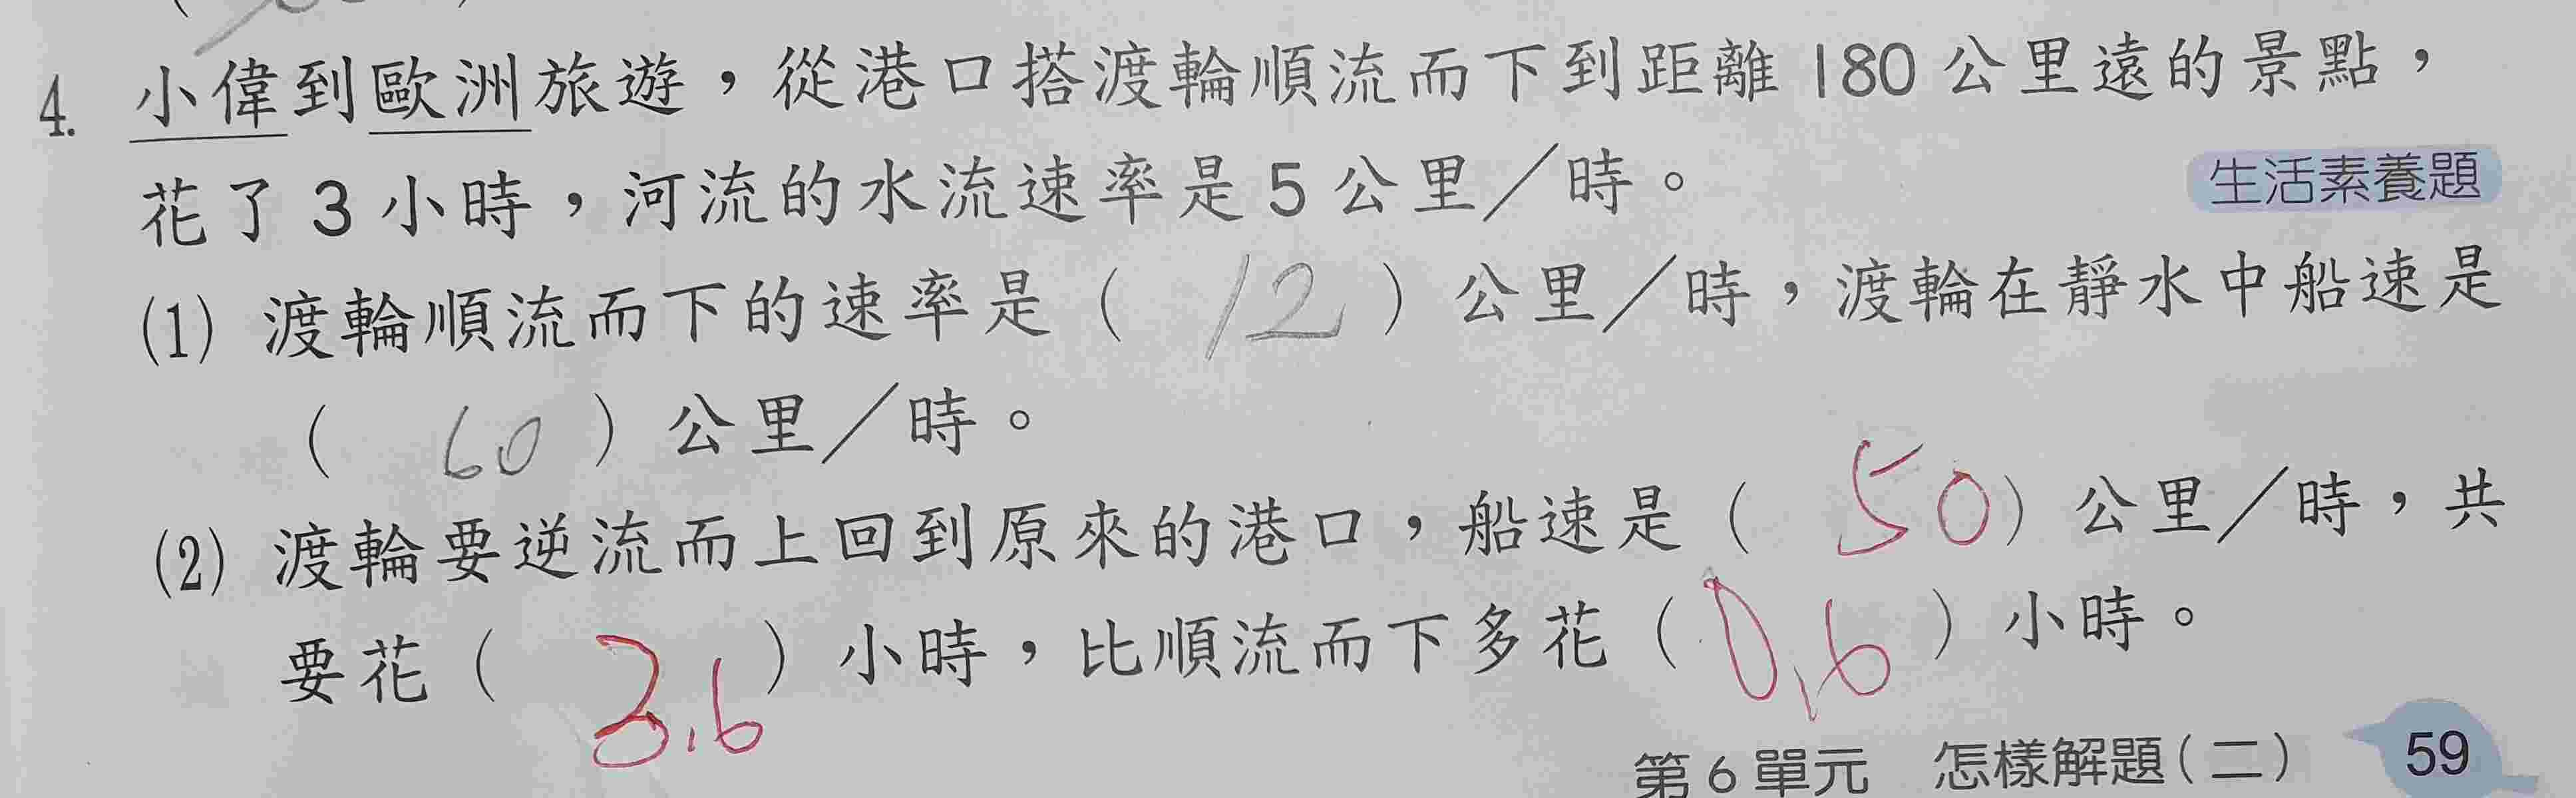 4. 小偉到歐洲旅遊，從港口搭渡輪順流而下到距離180公里遠的景點，
花了3小時，河流的水流速率是5公里／時。 生活素養題
(1) 渡輪順流而下的速率是（ 12 ）公里／時，渡輪在靜水中船速是
（ 60 ）公里／時。
(2) 渡輪要逆流而上回到原來的港口，船速是（ 50 ）公里／時，共
要花（ 3.6 ）小時，比順流而下多花（ 0.6 ）小時。
第6單元 怎樣解題（二） 59